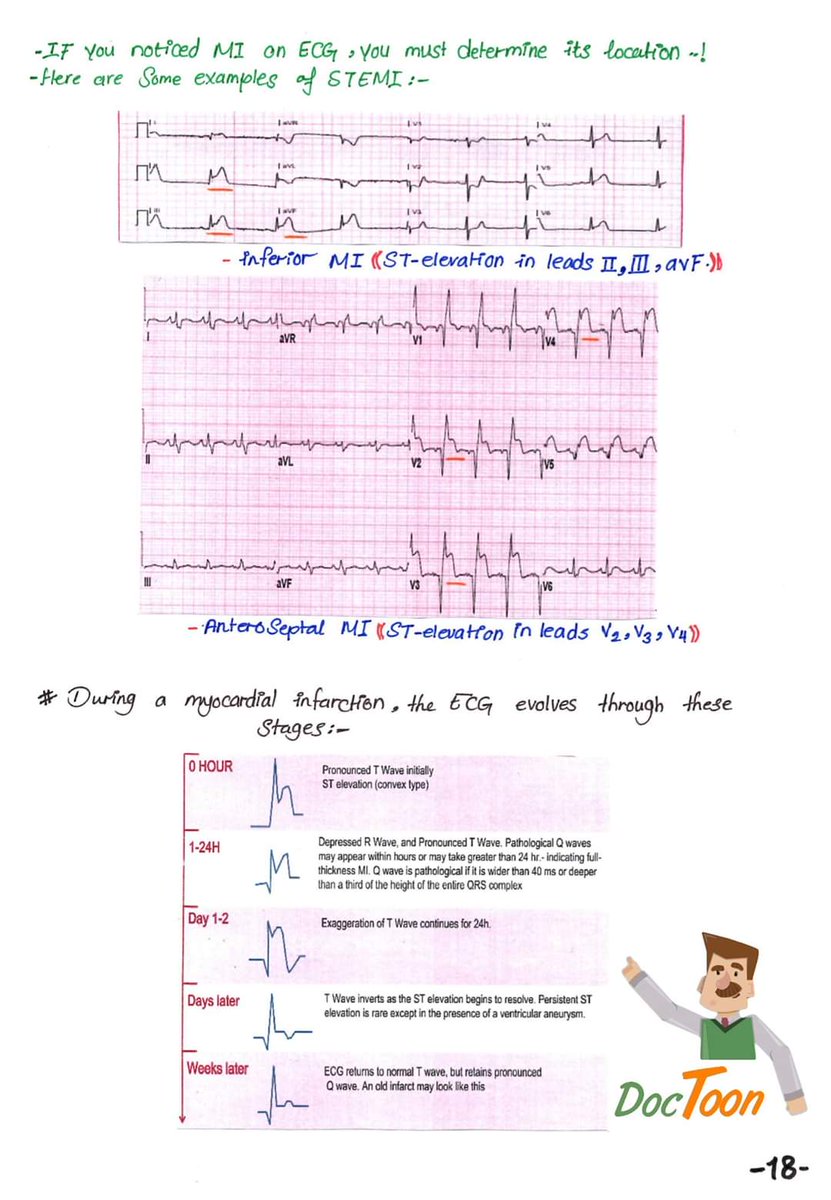 -IF you noticed MI on ECG, you must determine its location ..!
-Here are Some examples of STEMI:-
I aVR V1 V4
II aVL V2 V5
III aVF V3 V6
- Inferior MI ((ST-elevation in leads II, III, avF.))
I aVR V1 V4
II aVL V2 V5
III aVF V3 V6
- AnteroSeptal MI ((ST-elevation in leads V2, V3, V4))
# During a myocardial infarction, the ECG evolves through these
Stages:-
0 HOUR
Pronounced T Wave initially
ST elevation (convex type)
1-24H
Depressed R Wave, and Pronounced T Wave. Pathological Q waves
may appear within hours or may take greater than 24 hr.- indicating full-
thickness MI. Q wave is pathological if it is wider than 40 ms or deeper
than a third of the height of the entire QRS complex
Day 1-2
Exaggeration of T Wave continues for 24h.
Days later
T Wave inverts as the ST elevation begins to resolve. Persistent ST
elevation is rare except in the presence of a ventricular aneurysm.
Weeks later
ECG returns to normal T wave, but retains pronounced
Q wave. An old infarct may look like this
DocToon
-18-